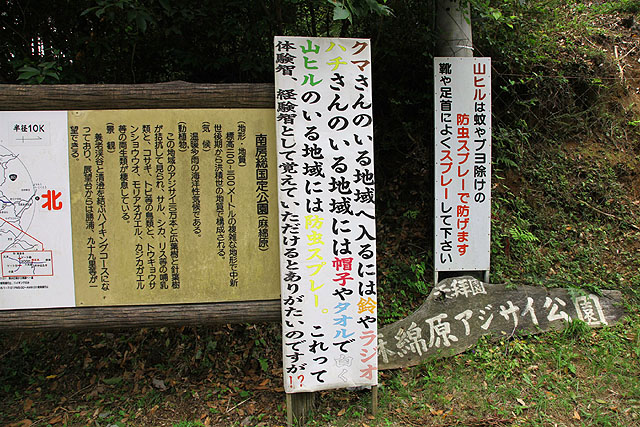 山ヒルは蚊やブヨ除けの
防虫スプレーで防げます
靴や足首によくスプレーして下さい
クマさんのいる地域へ入るには鈴やラジオ
ハチさんのいる地域には帽子やタオルで
山ヒルのいる地域には防虫スプレー。これって
体験智、経験智として覚えていただけるとありがたいのですが!?
南房総国定公園(麻綿原)
(地形・地質)
標高二〇〇〜三〇〇メートルの複雑な地形で中新
世後期から洪積世の地質で構成される。
(気候)
温暖多雨の海洋性気候である。
(動植物)
この地域のアジサイ三万本と広葉樹と針葉樹
が拮抗して見られ、サル、シカ、リス等の哺乳
類と、コサギ、トビ等の鳥類と、トウキョウサ
ンショウウオ、モリアオガエル、カジカガエル
等の両生類が棲息している。
(景観)
養老渓谷と清澄を結ぶハイキングコースにな
っており、展望台からは勝浦、九十九里等が一
望できる。
半径10K
北
天拝園
麻綿原アジサイ公園